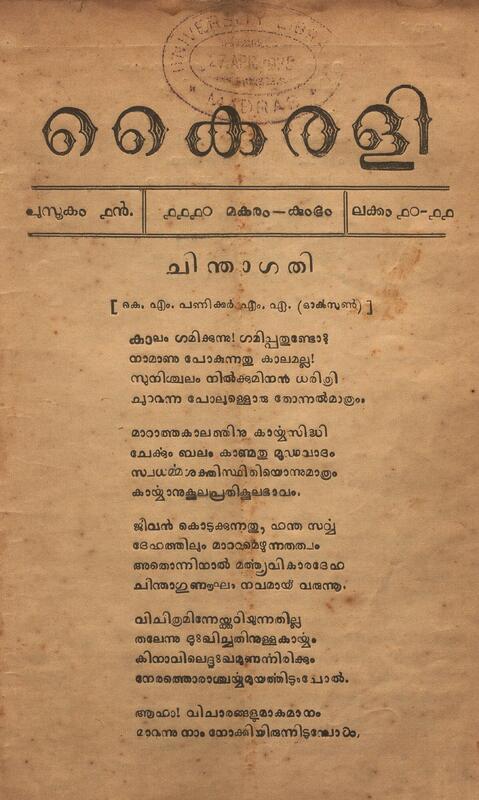 UNIVERSITY LIBRARY
27 APR 1935
MADRAS
കൈരളി
പുസ്തകം ൧ൻ.
൧൧൧൦ മകരം—കുംഭം
ലക്കം ൧൦-൧൧
ചിന്താഗതി
[ കെ. എം. പണിക്കർ എം. എ. (ഓക്സൺ) ]
കാലം ഗമിക്കുന്നു! ഗമിപ്പതുണ്ടോ?
നാമാണു പോകുന്നതു കാലമല്ല!
സുനിശ്ചലം നിൽക്കുമിനൻ ധരിത്രി
ചുററുന്ന പോലുള്ളൊരു തോന്നൽമാത്രം.
മാറാത്തകാലത്തിനു കാര്യ്യസിദ്ധി
ചേക്കും ബലം കാണ്മതു മൂഢവാദം
സ്വധർമ്മശക്തിസ്ഥിതിയൊന്നുമാത്രം
കാര്യ്യാനുകൂലപ്രതികൂലഭാവം.
ജീവൻ കൊടുക്കുന്നതു, ഹന്ത സർവ്വ
ദേഹത്തിലും മാററമെഴുന്നതത്വം
അതൊന്നിനാൽ മർത്ത്യവികാരദേഹ
ചിന്താഗുണൗഘം നവമായ് വരുന്നൂ.
വിചിത്രമിന്നേയ്ക്കറിയുന്നതില്ല
തലേന്നു ദുഃഖിച്ചതിനുള്ളകാര്യ്യം
കിനാവിലെദ്ദുഃഖമുണർന്നിരിക്കും
നേരത്തൊരാശ്ചര്യ്യമുയർത്തിടുംപോൽ.
ആഹാ! വിചാരങ്ങളുമാകമാനം
മാറുന്നു നാം നോക്കിയിരുന്നിടുമ്പോൾ,